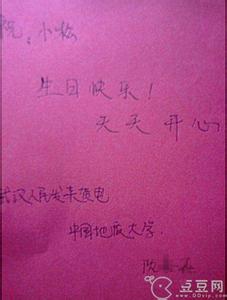 祝:小松
生日快乐!
天天开心
武汉人民发来贺电
中国地质大学.
欧
点豆网
www.ddvip.com